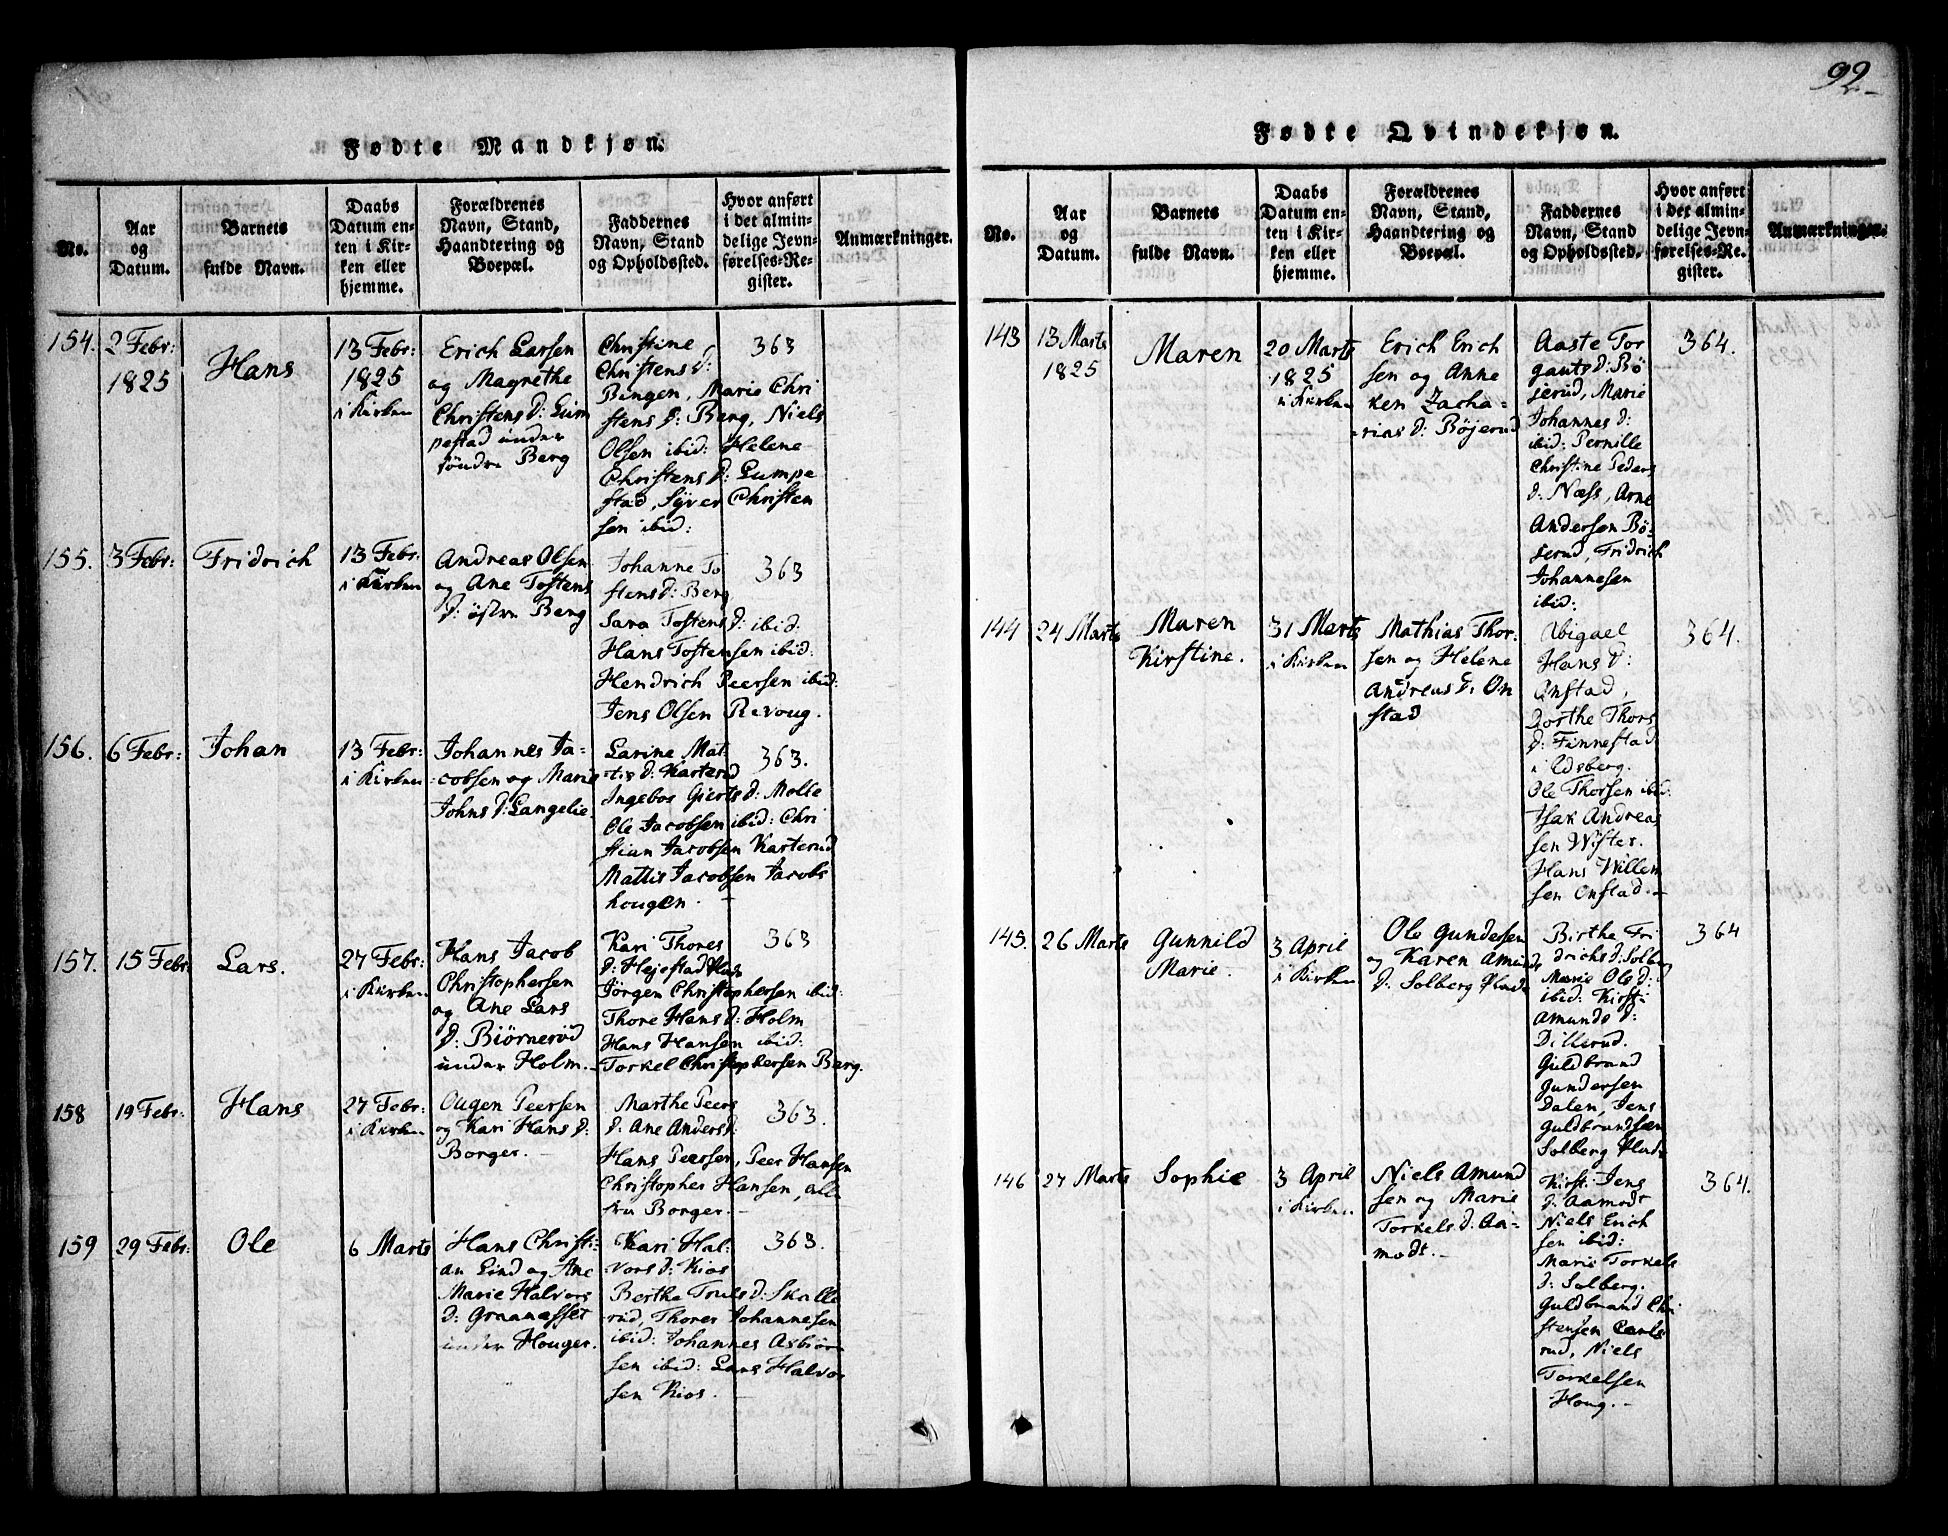 92.
Fødte Mandkjøn.
No.
Aar
og
Datum.
Barnets
fulde Navn.
Daabs
Datum en-
ten i Kir-
ken eller
hjemme.
Forældrenes
Navn, Stand,
Haandtering og
Boepæl.
Faddernes
Navn, Stand
og Opholdssted.
Hvor anført
i det almin-
delige Jevn-
førelses-Re-
gister.
Anmærkninger.
154.
2 Febr:
1825
Hans
13 Febr:
1825
i Kirken
Erich Larsen
og Magrethe
Christens D: Lum
pestad under
søndre Berg
Christine
Christens D:
Bingen, Marie Chri
stens D: Berg, Niels
Olsen ibid: Helene
Christens D: Lumpe
stad, Syver Christen
sen ibid:
363
155.
3 Febr:
Fridrich
13 Febr:
i Kirken
Andreas Olsen
og Ane Tostens
D: østre Berg
Johanne To
stens D: Berg
Sara Tostens D: ibid.
Hans Tostensen ibid:
Hendrich Peersen ibid:
Jens Olsen Revoug.
363
156.
6 Febr:
Johan
13 Febr:
i Kirken
Johannes Ja-
cobsen og Marie
Johns D: Langelie.
Larine Mat-
tis D: Karterud
Ingebor Gierts D: Molle
Ole Jacobsen ibid: Chri
stian Jacobsen Karterud
Mattis Jacobsen Jacobs
hougen.
363.
157.
15 Febr.
Lars.
27 Febr:
i Kirken
Hans Jacob
Christophersen
og Ane Lars
D: Biørnerød
under Holm.
Kari Thores
D: Hejestad
Jørgen Christophersen ibid:
Thore Hans D: Holm
Hans Hansen ibid:
Torkel Christophersen Berg.
363
158
19 Febr:
Hans
27 Febr:
i Kirken
Ougen Peersen
og Kari Hans D:
Borger.
Marthe Peers
D: Ane Anders D:
Hans Peersen, Peer Hansen
Christopher Hansen, alle
fra Borger.
363.
159
29 Febr:
Ole
6 Marts
Hans Christi-
an Lind og Ane
Marie Halvors
D: Graanesset
under Houger.
Kari Hal-
vors D: Kios
Berthe Truls D: Skolle
rud, Thores Johannesen
ibid: Johannes Asbiør-
sen ibid: Lars Halvor
sen Kios.
363.
Fødte Qvindekjøn.
No.
Aar
og
Datum.
Barnets
fulde Navn.
Daabs
Datum en-
ten i Kir-
ken eller
hjemme.
Forældrenes
Navn, Stand,
Haandtering og
Boepæl.
Faddernes
Navn, Stand
og Opholdssted.
Hvor anført
i det almin-
delige Jevn-
førelses-Re-
gister.
Anmærkninger.
143
13 Marts
1825
Maren
20 Marts
1825
i Kirken
Erich Erich
sen og Anne
ken Zacha-
rias D: Bøjerud
Aaste Tor
gauts D: Bø
jerud, Marie
Johannes D:
ibid: Pernille
Christine Peders
D: Næss, Arne
Andersen Bø-
jerud, Fridrich
Johannesen
ibid:
364.
144
24 Marts
Maren
Kirstine.
31 Marts
i Kirken
Mathias Thor-
sen og Helene
Andreas D: On
stad
Abigael
Hans D:
Onstad,
Dorthe Thors
D: Finnestad
i Edsberg.
Ole Thorsen ibid:
Isak Andreas
sen Wister.
Hans Willem
sen Onstad.
364.
145.
26 Marts
Gunnild
Marie.
3 April
i Kirken
Ole Gundersen
og Karen Amunds
D. Solberg
Birthe Fri
drichs D: Solberg
Marie Ols D:
ibid: Kirsti
Amunds D:
Dillerud.
Guldbrand
Gundersen
Dalen, Jens
Guldbrandsen
Solberg
364
146
27 Marts
Sophie
3 April
i Kirken
Niels Amund
sen og Marie
Torkels D. Aa-
modt.
Kirsti Jens
D: Aamodt
Niels Erich
sen ibid:
Marie Torkels
D: Solberg.
Guldbrand Chri
stensen Carls
rud, Niels
Torkelsen
Houg.
364.